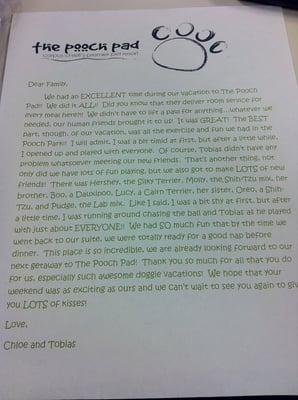 the pooch pad
corpus christi's premier pet resort
Dear Family,
We had an EXCELLENT time during our vacation to The Pooch
Pad!! We did it ALL!! Did you know that they deliver room service for
every meal here!! We didn't have to lift a paw for anything....whatever we
needed, our human friends brought it to us! It was GREAT! The BEST
part, though, of our vacation, was all the exercise and fun we had in the
Pooch Park!! I will admit, I was a bit timid at first, but after a little while,
I opened up and played with everyone. Of course, Tobias didn't have any
problem whatsoever meeting our new friends. That's another thing, not
only did we have lots of fun playing, but we also got to make LOTS of new
friends! There was Hershey, the Silky Terrier, Molly, the Shih-Tzu mix, her
brother, Boo, a Dauxipoo, Lucy, a Cairn Terrier, her sister, Oreo, a Shih-
Tzu, and Pudge, the Lab mix. Like I said, I was a bit shy at first, but after
a little time, I was running around chasing the ball and Tobias as he played
with just about EVERYONE!! We had SO much fun that by the time we
went back to our suite, we were totally ready for a good nap before
dinner. This place is so incredible, we are already looking forward to our
next getaway to The Pooch Pad! Thank you so much for all that you do
for us, especially such awesome doggie vacations! We hope that your
weekend was as exciting as ours and we can't wait to see you again to give
you LOTS of kisses!
Love,
Chloe and Tobias